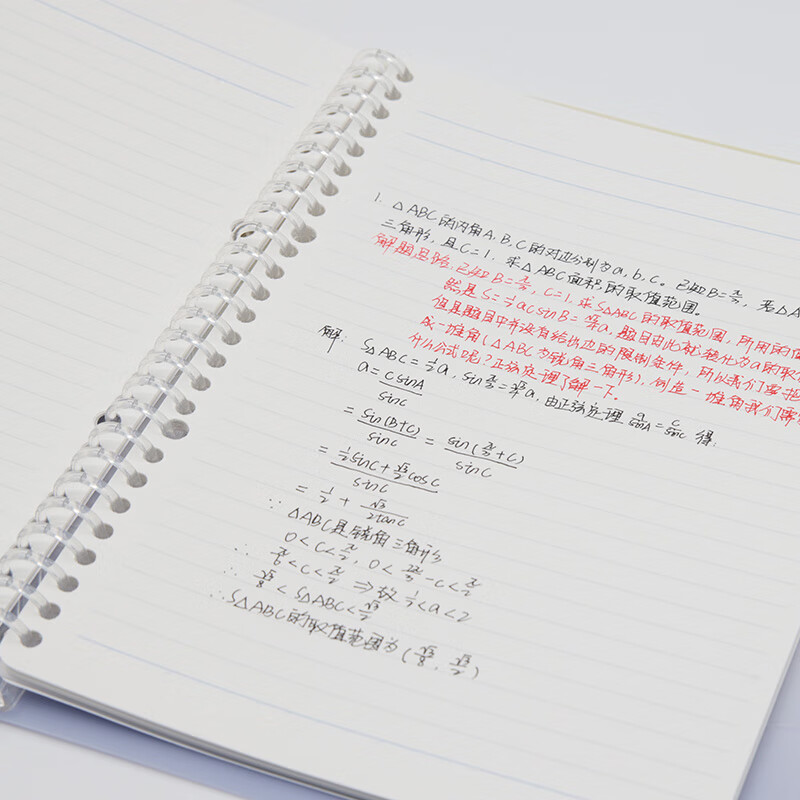 1. △ABC的内角A,B,C的对边分别为a,b,c。已知B=π/3, 若△A
三角形, 且C=1, 求△ABC面积的取值范围。
解题思路:已知B=π/3, C=1, 求S△ABC的取值范围, 所用的
然是S=½acsinB=√3/4a, 题目因此就转化为a的取
但是题目中并没有给出边的限制条件, 所以我们需把
成一堆角(△ABC为锐角三角形), 创造一堆角我们需
什么公式呢?正弦定理了解一下。
解: S△ABC=½a, sinπ/3=√3/4a, 由正弦定理 a/sinA=c/sinC 得:
a=CsinA/sinC
=sin(B+C)/sinC=sin(π/3+C)/sinC
=½sinC+√3/2cosC/sinC
=1/2+√3/2tanC
∵ △ABC是锐角三角形
0<C<π/2, 0<2π/3-C<π/2
∴ π/6<C<π/2 ⇒故½<a<2
∴ √3/8<S△ABC<√3/2
∴S△ABC的取值范围为(√3/8, √3/2)